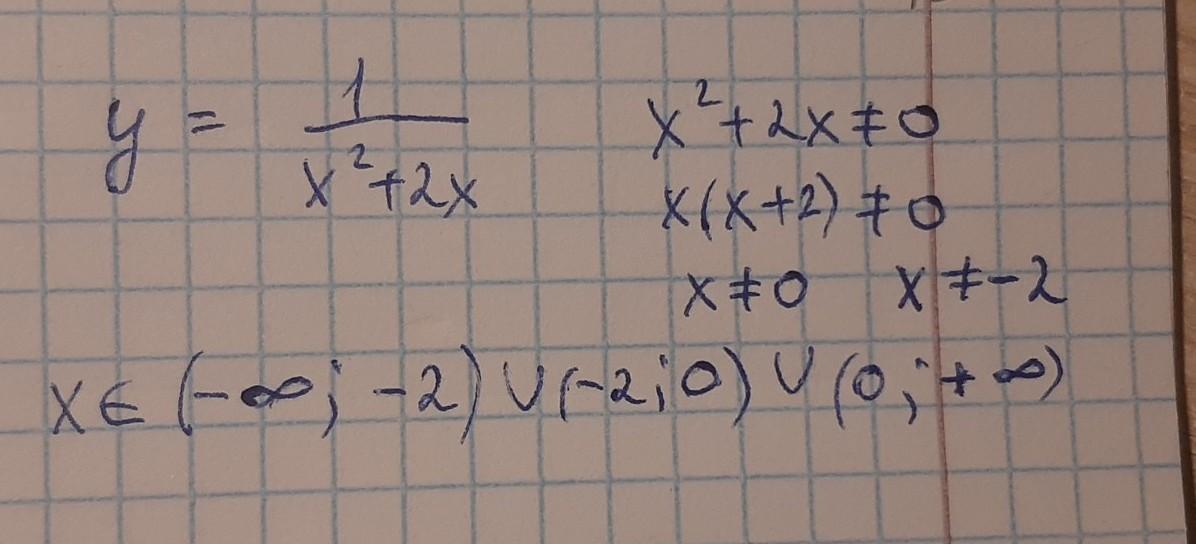 y = 1/(x²+2x)
x²+2x≠0
x(x+2)≠0
x≠0 x≠-2
x∈(-∞; -2)∪(-2;0)∪(0;+∞)